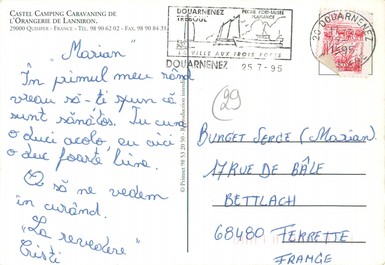 CASTEL CAMPING CARAVANING DE
L'ORANGERIE DE LANNIRON.
29000 QUIMPER - FRANCE - TEL. 98 90 62 02 - FAX. 98 90 84 31
DOUARNENEZ
TREBOUL
PECHE PORT-MUSEE
PLAISANCE
LA VILLE AUX TROIS PORTS
DOUARNENEZ 25 7-95
29 DOUARNENEZ
"Marian"
În primul meu rând
vreau să-ți spun că
sunt sănătos. Tu cum
o duci acolo, eu aici
o duc foarte bine.
O să ne vedem
în curând.
"La revedere"
Cristi
29
BURGET SERGE (Marian)
17 RUE DE BÂLE
BETTLACH
68480 FERRETTE
FRANCE